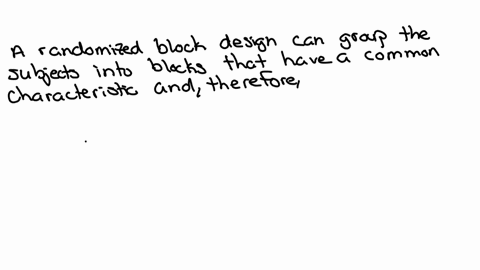 A randomized block design can group the
subjects into blocks that have a common
characteristic and, therefore,